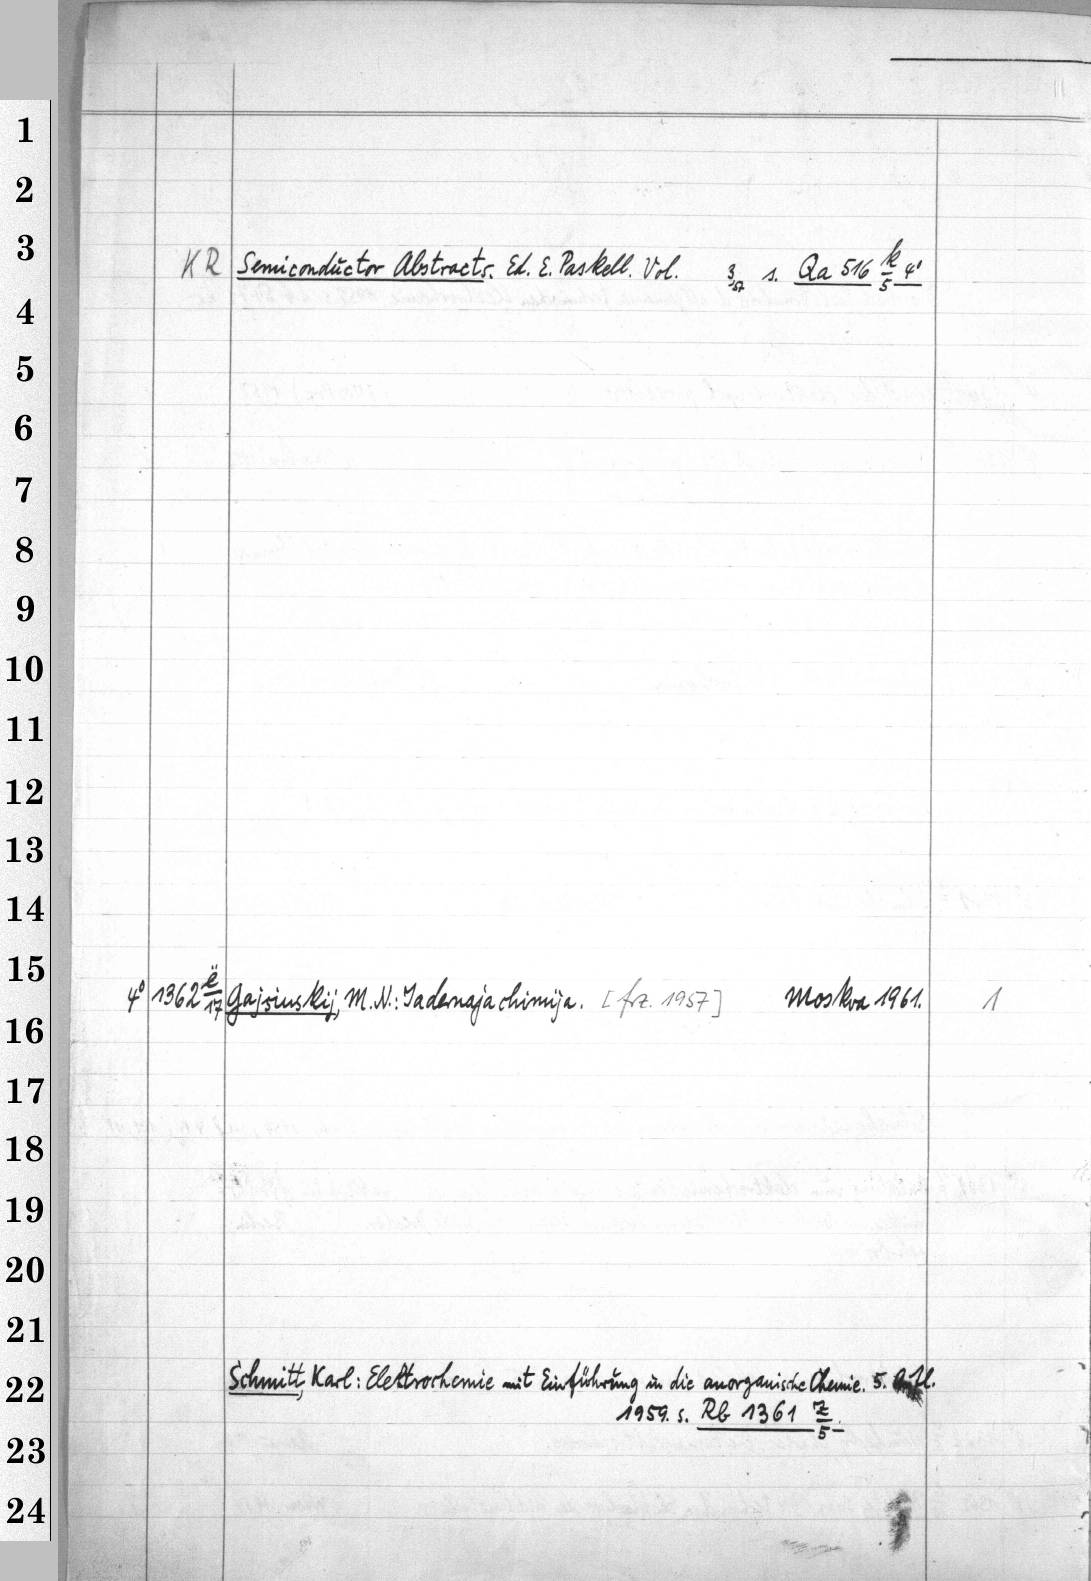 1
2
3
KR Semiconductor Abstracts. Ed. E. Paskell. Vol. 3 57 s. Qa 516 k/5 4°
4
5
6
7
8
9
10
11
12
13
14
15
4° 1362 ë/17 Gajsinskij, M. N.: Jadernaja chimija. [frz. 1957] Moskva 1961. 1
16
17
18
19
20
21
22
Schmitt, Karl: Elektrochemie mit Einführung in die anorganische Chemie. 5. Aufl.
1959. s. Rb 1361 z/5
23
24